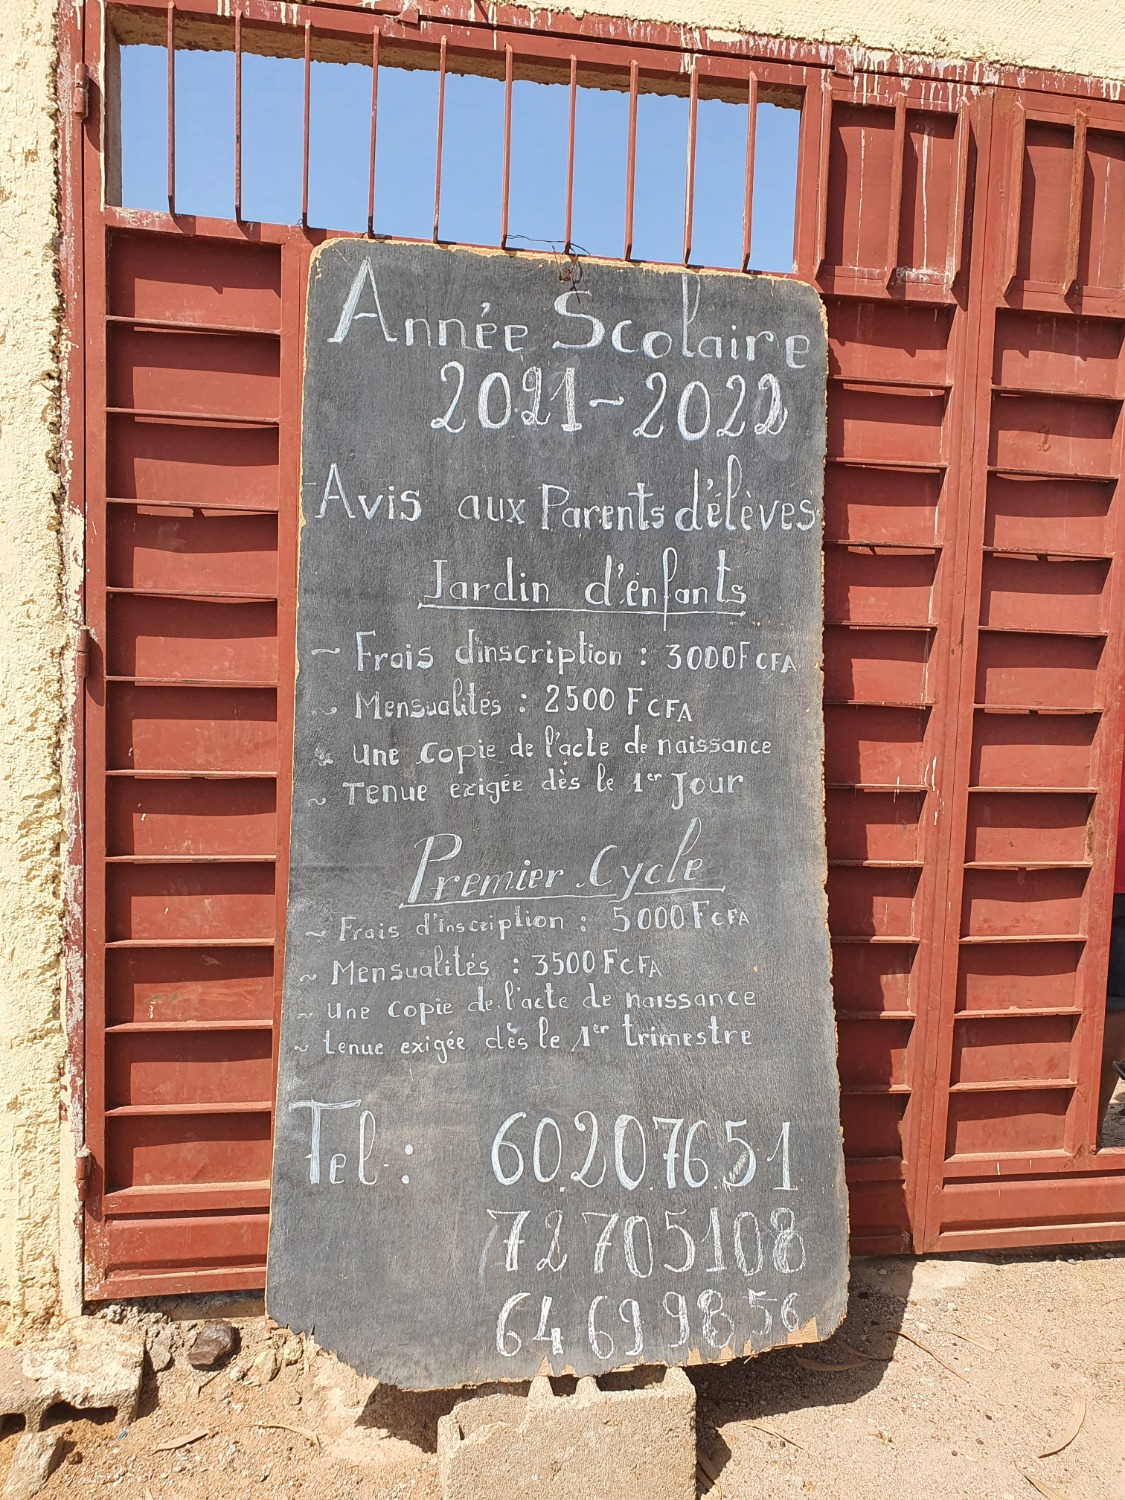 Année Scolaire
2021-2022
Avis aux Parents d'élèves
Jardin d'enfants
~ Frais d'inscription : 3000F CFA
~ Mensualités : 2500 F CFA
~ Une copie de l'acte de naissance
~ Tenue exigée dès le 1er Jour
Premier Cycle
~ Frais d'inscription : 5000 F CFA
~ Mensualités : 3500 F CFA
~ Une copie de l'acte de naissance
~ tenue exigée dès le 1er trimestre
Tel : 60.20.76.51
72 70 51 08
64 69 98 56